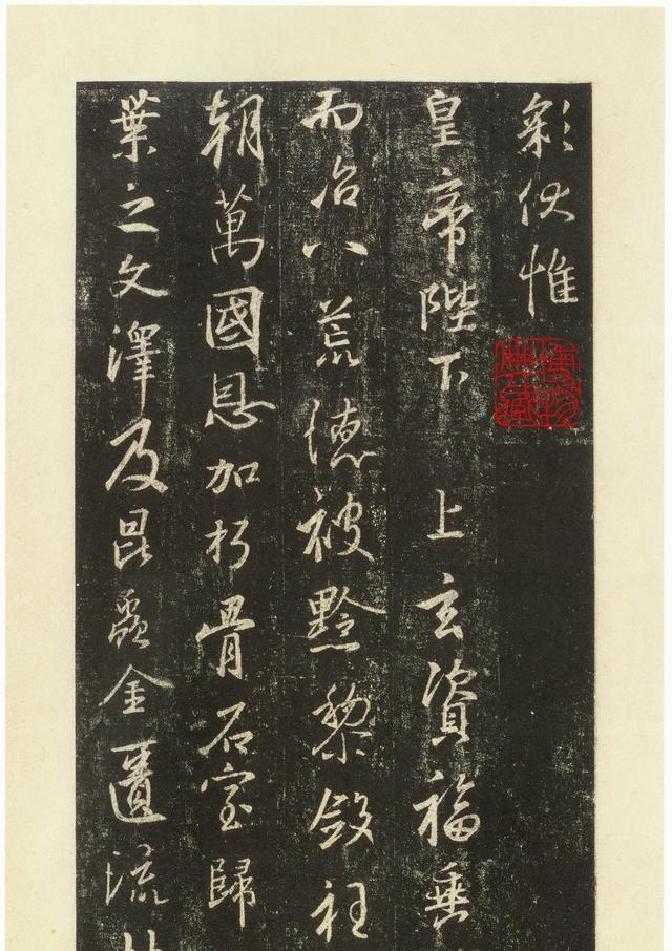 彩伏惟
皇帝陛下 上玄資福垂
而治八荒德被黔黎斂衽
朝萬國恩加朽骨石室歸
葉之文澤及昆蟲金匱流
博物典藏